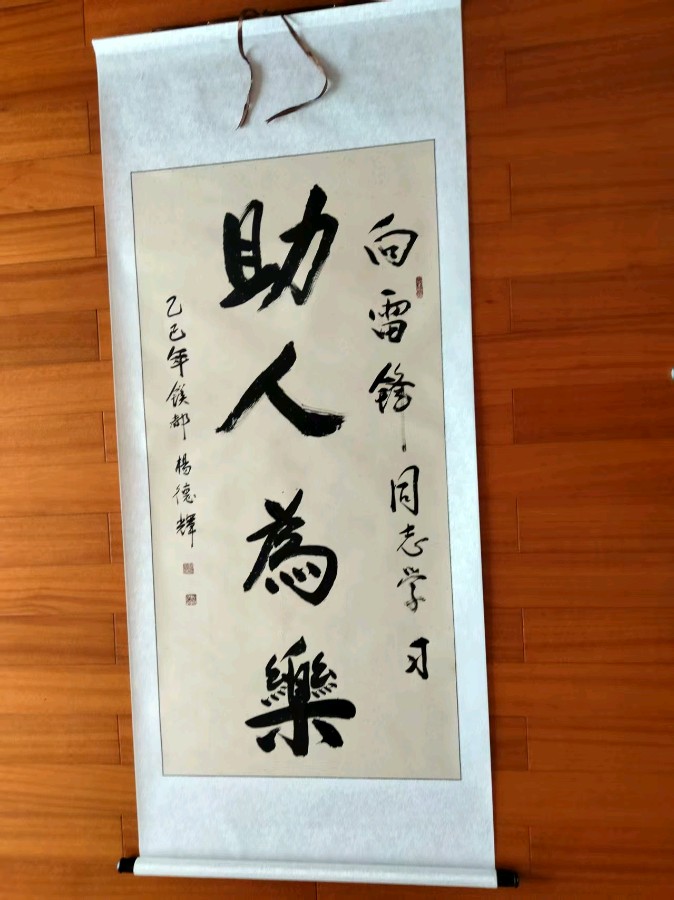 向雷锋同志学习
助人為樂
乙巳年鎂都楊德輝